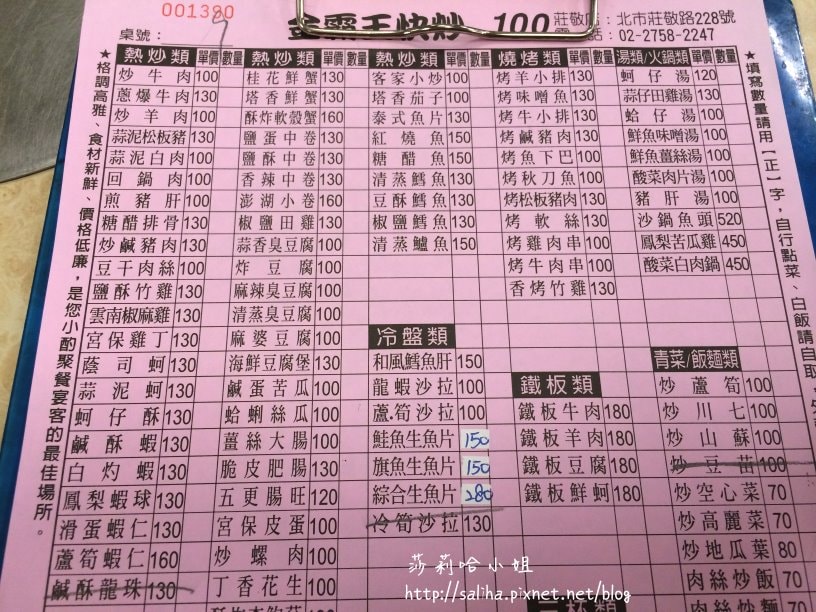 001390
金霸王快炒 100
莊敬店：北市莊敬路228號
電話：02-2758-2247
桌號：
★格調高雅、食材新鮮、價格低廉，是您小酌聚餐宴客的最佳場所。
熱炒類 單價 數量
炒牛肉 100
蔥爆牛肉 130
炒羊肉 100
蒜泥松板豬 130
蒜泥白肉 100
回鍋肉 100
煎豬肝 100
糖醋排骨 130
炒鹹豬肉 100
豆干肉絲 100
鹽酥竹雞 130
雲南椒麻雞 130
宮保雞丁 130
蔭司蚵 130
蒜泥蚵 130
蚵仔酥 130
鹹酥蝦 130
白灼蝦 130
鳳梨蝦球 130
滑蛋蝦仁 130
蘆筍蝦仁 160
鹹酥龍珠 130
熱炒類 單價 數量
桂花鮮蟹 130
塔香鮮蟹 130
酥炸軟殼蟹 160
鹽蛋中卷 130
鹽酥中卷 130
香辣中卷 130
澎湖小卷 160
椒鹽田雞 130
蒜香臭豆腐 100
炸豆腐 100
麻辣臭豆腐 100
清蒸臭豆腐 100
麻婆豆腐 100
海鮮豆腐堡 130
鹹蛋苦瓜 100
蛤蜊絲瓜 100
薑絲大腸 100
脆皮肥腸 130
五更腸旺 120
宮保皮蛋 100
炒螺肉 100
丁香花生 100
熱炒類 單價 數量
客家小炒 100
塔香茄子 100
泰式魚片 130
紅燒魚 150
糖醋魚 150
清蒸鱈魚 130
豆酥鱈魚 130
椒鹽鱈魚 130
清蒸鱸魚 150
冷盤類
和風鱈魚肝 150
龍蝦沙拉 100
蘆筍沙拉 100
鮭魚生魚片 150
旗魚生魚片 150
綜合生魚片 280
冷筍沙拉 130
燒烤類 單價 數量
烤羊小排 130
烤味噌魚 100
烤牛小排 130
烤鹹豬肉 100
烤魚下巴 100
烤秋刀魚 100
烤松板豬肉 130
烤軟絲 130
烤雞肉串 100
烤牛肉串 100
香烤竹雞 130
鐵板類
鐵板牛肉 180
鐵板羊肉 180
鐵板豆腐 180
鐵板鮮蚵 180
湯類/火鍋類 單價 數量
蚵仔湯 120
蒜仔田雞湯 130
蛤仔湯 100
鮮魚味噌湯 100
鮮魚薑絲湯 100
酸菜肉片湯 100
豬肝湯 100
沙鍋魚頭 520
鳳梨苦瓜雞 450
酸菜白肉鍋 450
青菜/飯麵類
炒蘆筍 100
炒川七 100
炒山蘇 100
炒豆苗 100
炒空心菜 70
炒高麗菜 70
炒地瓜葉 80
肉絲炒飯 70
肉絲炒麵 70
★填寫數量請用【正】字，自行點菜、白飯請自取
莎莉哈小姐
http://saliha.pixnet.net/blog